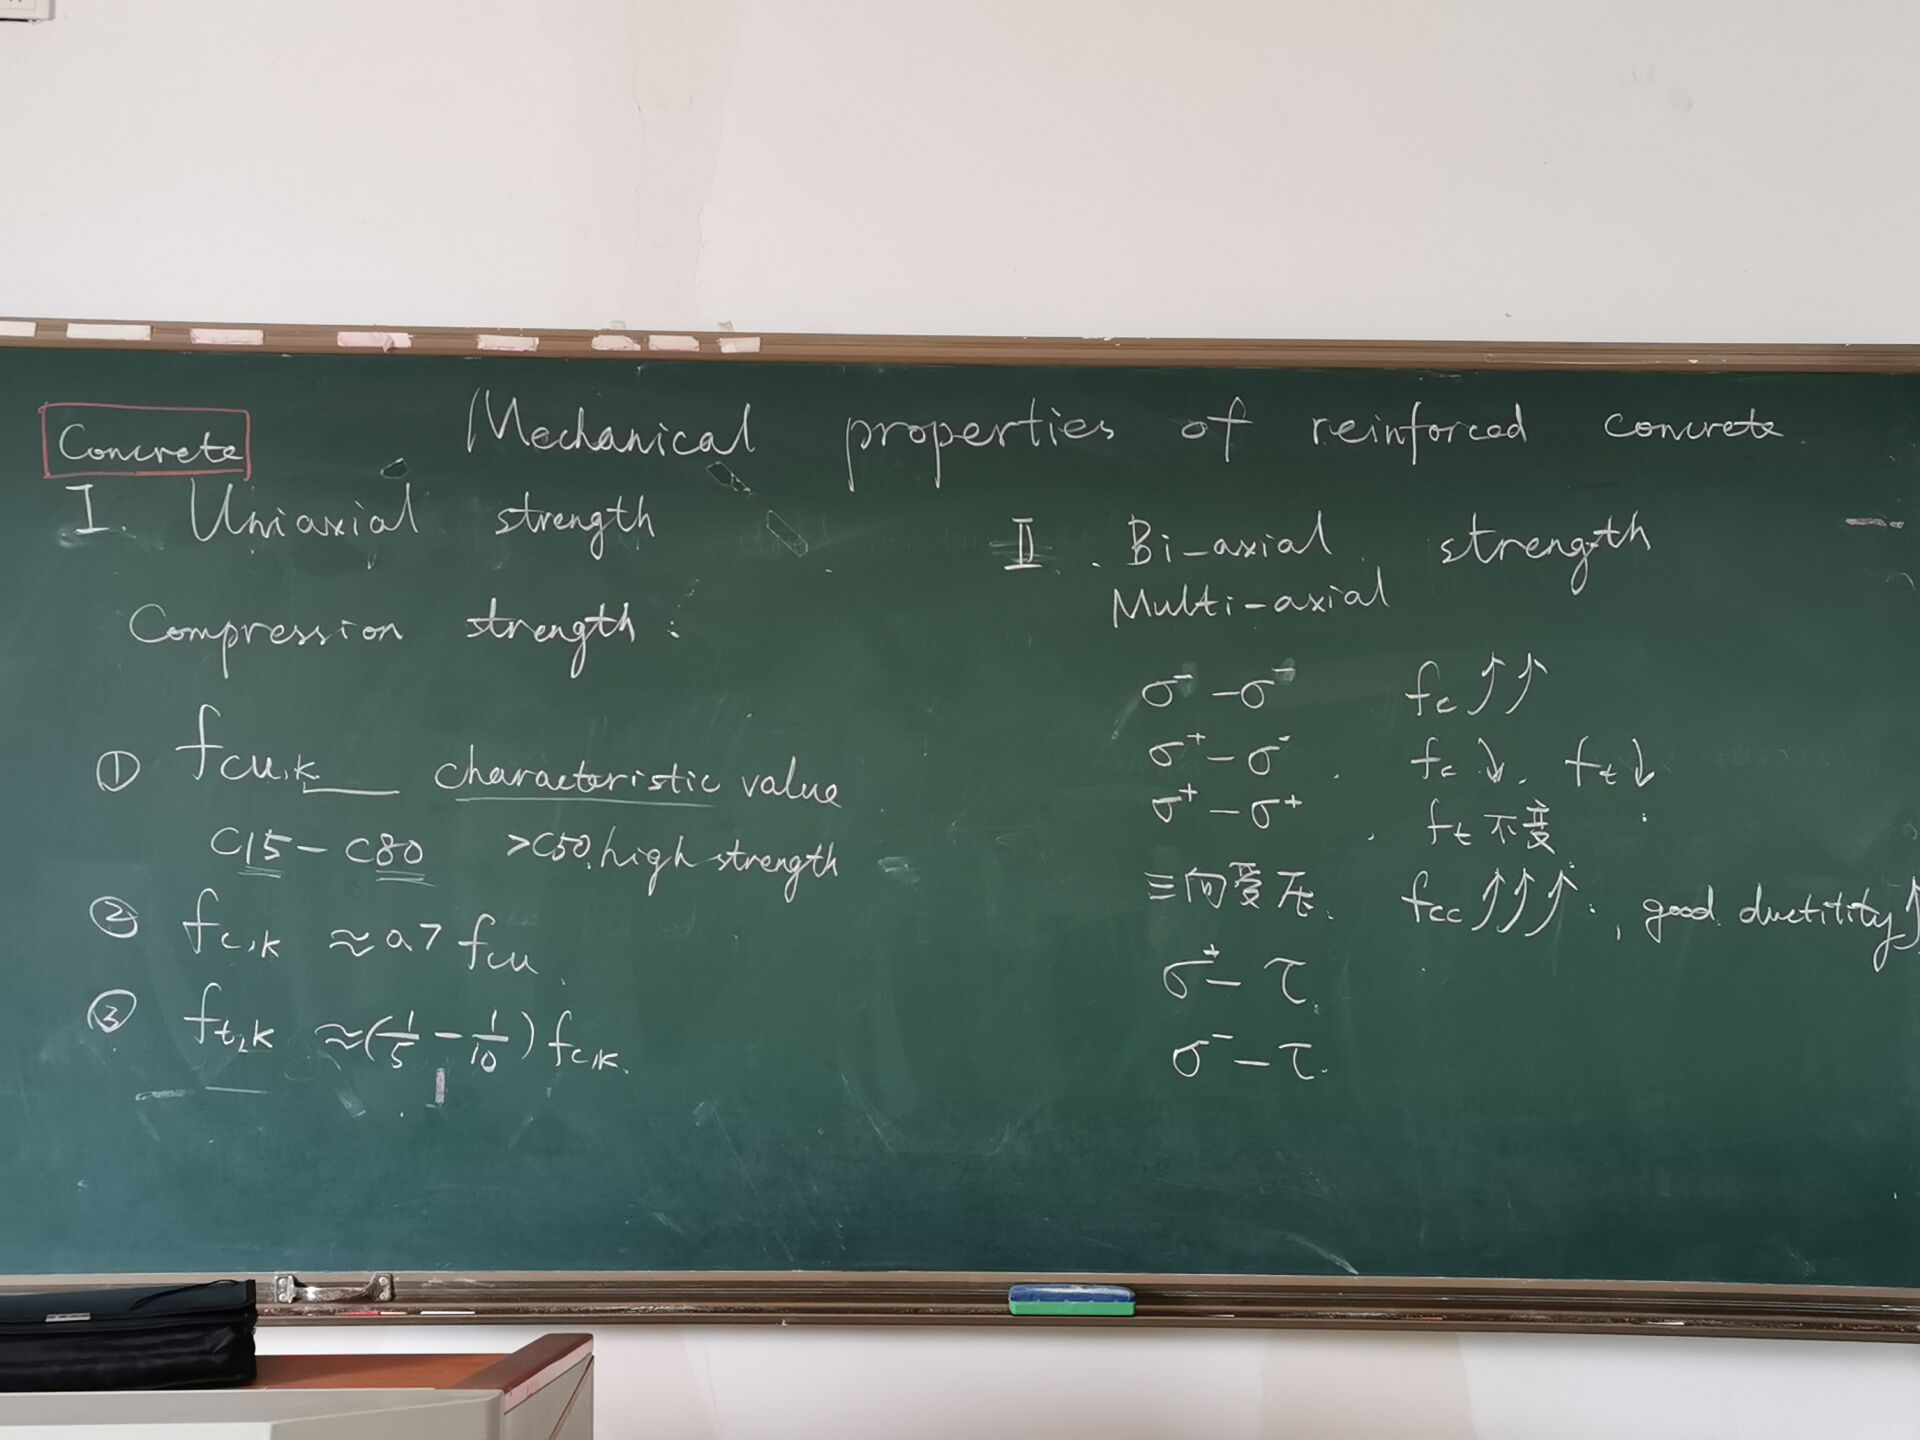 Concrete
Mechanical properties of reinforced concrete
I. Uniaxial strength
Compression strength:
① fcu,k —— characteristic value
C15-C80 >C50, high strength
② fc,k ≈ 0.7 fcu
③ ft,k ≈ (1/5 - 1/10) fc,k
II. Bi-axial strength
Multi-axial
σ⁻-σ⁻ fc↑↑
σ⁺-σ⁻. fc↓, ft↓
σ⁺-σ⁺. ft 不变
三向受压. fcc↑↑↑, good ductitity↑
σ⁺-τ.
σ⁻-τ.